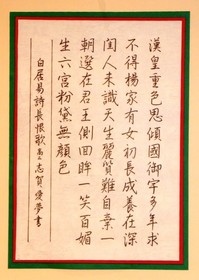 漢皇重色思傾國御宇多年求
不得楊家有女初長成養在深
閨人未識天生麗質難自棄一
朝選在君王側回眸一笑百媚
生六宮粉黛無顏色
白居易詩長恨歌 志賀愛夢書